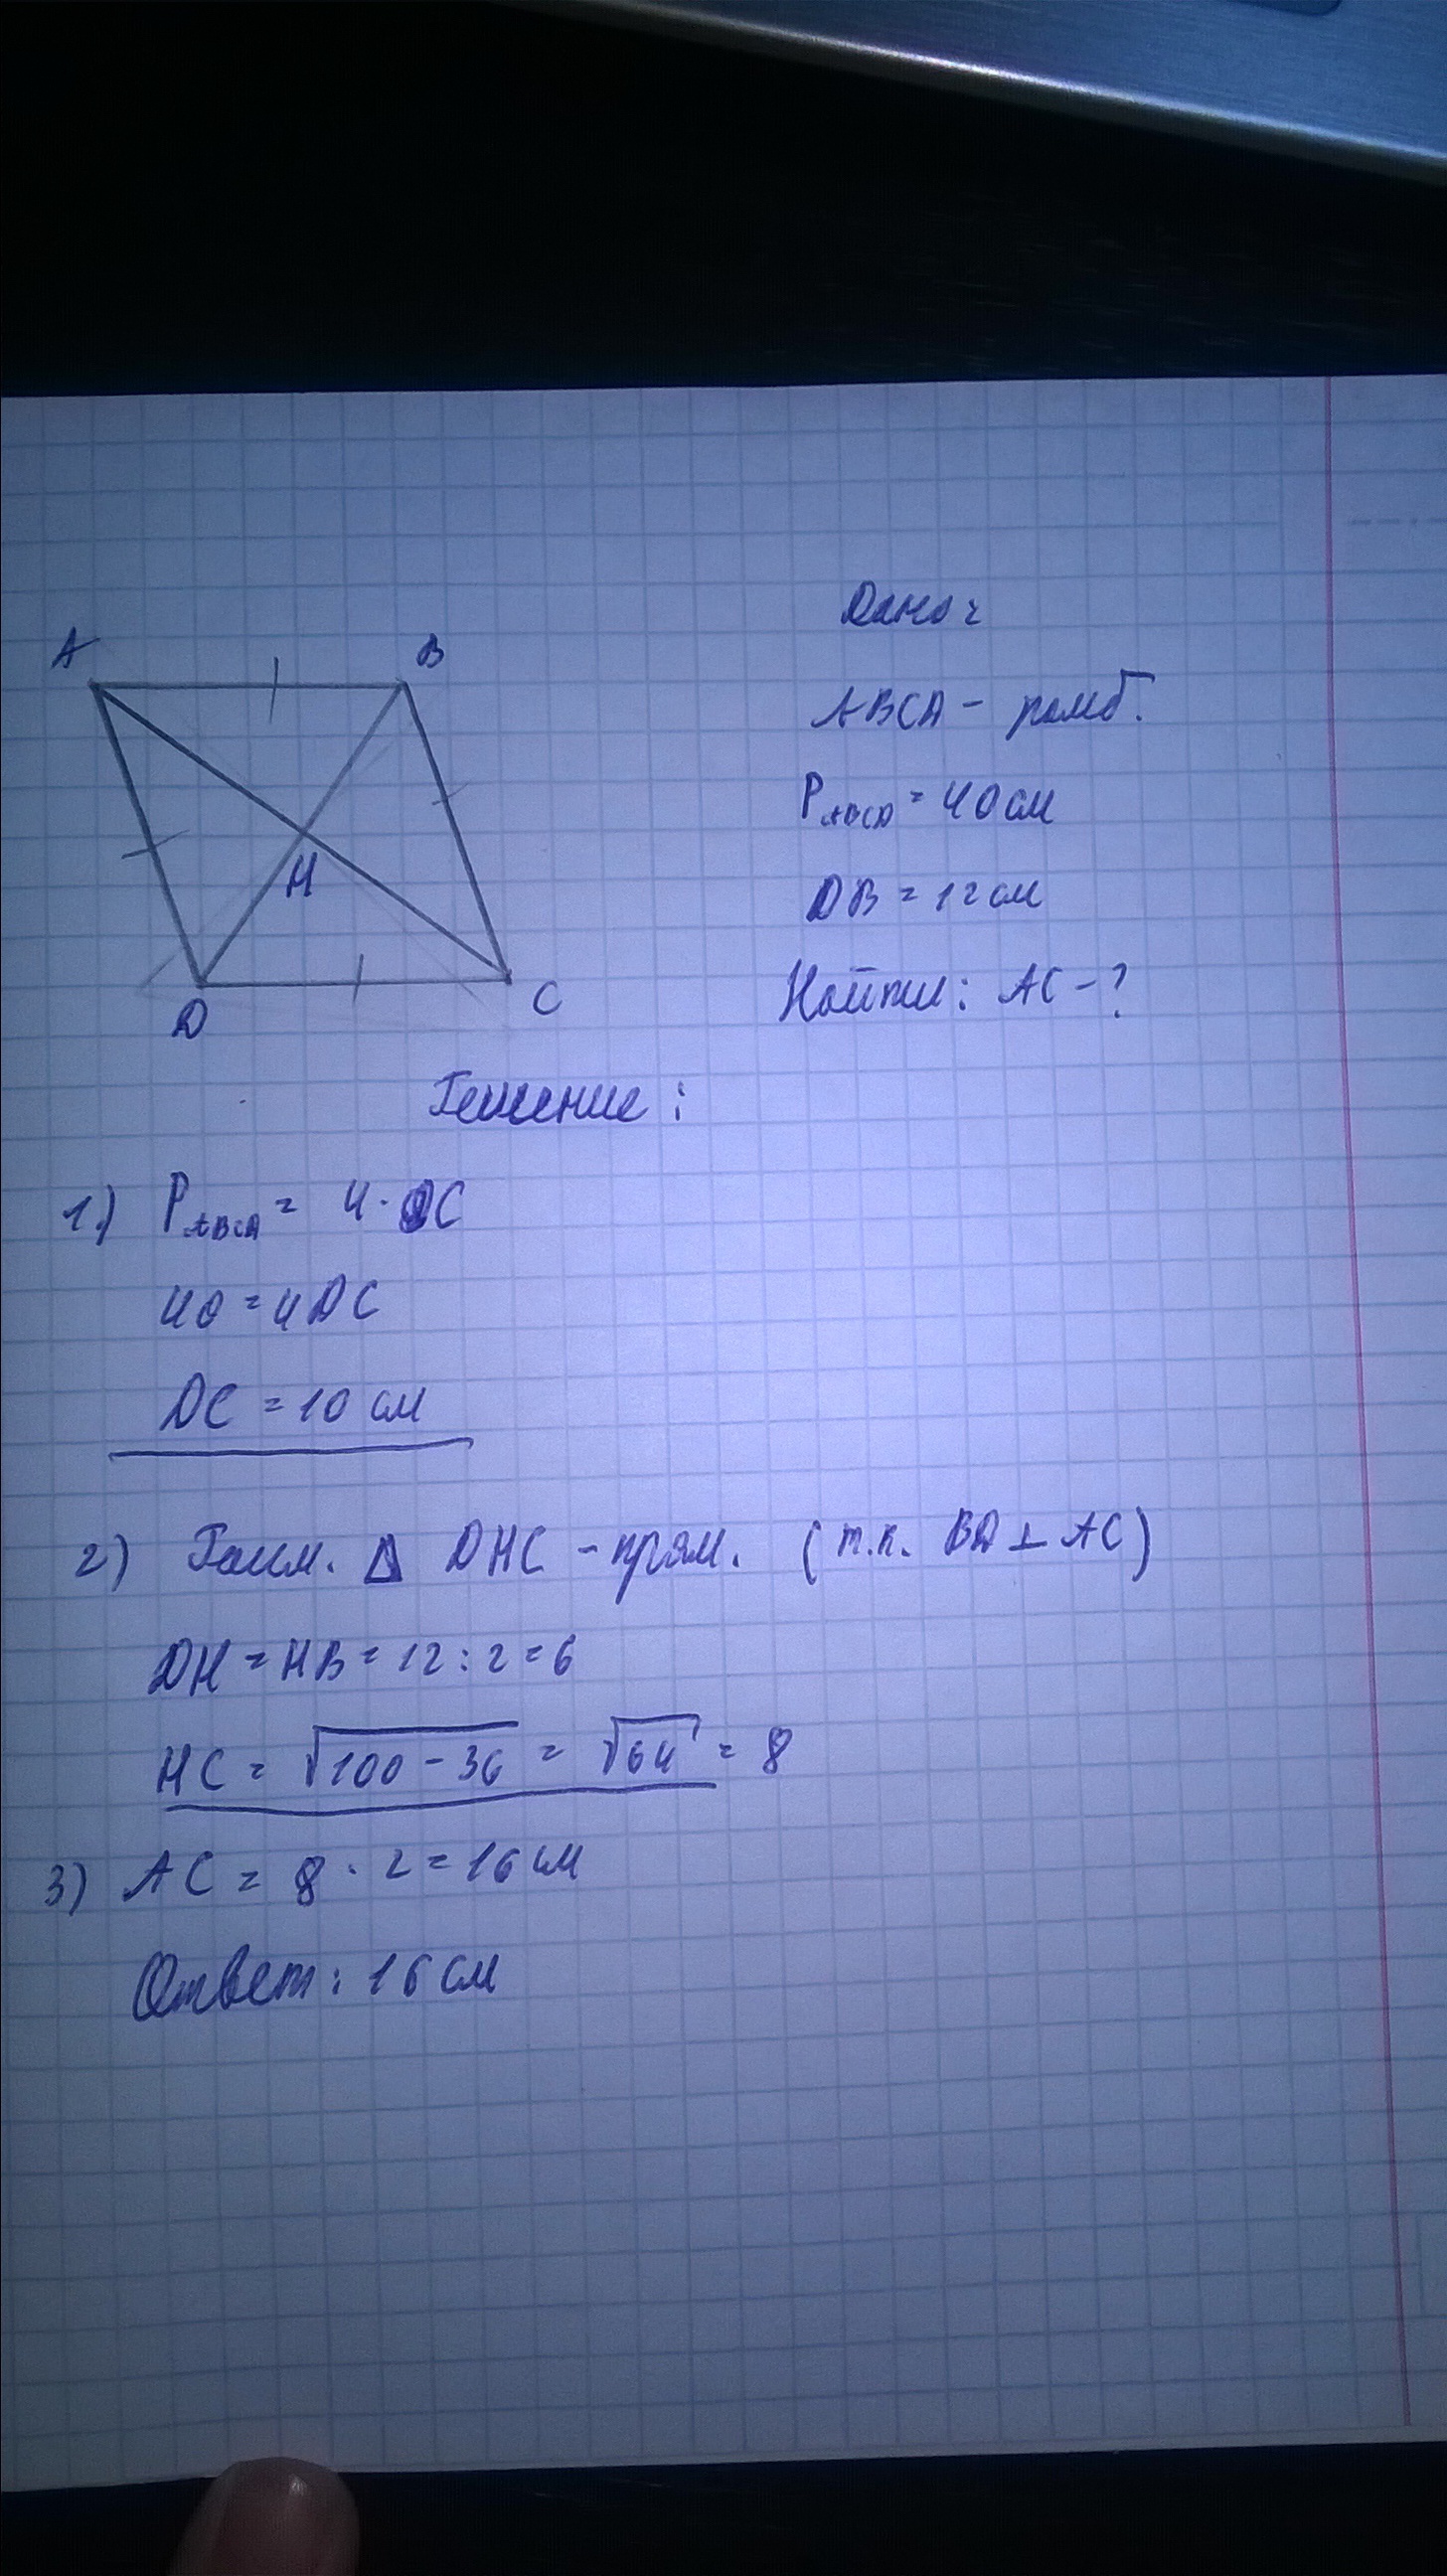 A
B
H
D
C
Дано:
ABCD - ромб.
PABCD = 40 см
DB = 12 см
Найти: AC - ?
Решение:
1.) PABCD = 4 · DC
40 = 4DC
DC = 10 см
2) Расм. Δ DHC - прям. (т.к. BD ⊥ AC)
DH = HB = 12 : 2 = 6
HC = √100 - 36 = √64 = 8
3) AC = 8 · 2 = 16 см
Ответ: 16 см